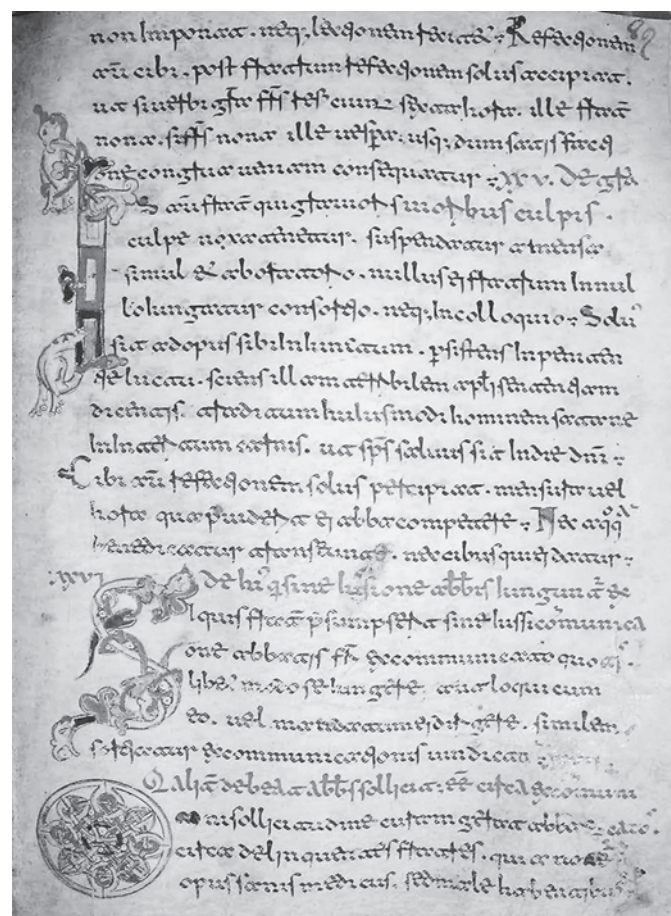 non Imponat. neq; lectionem recitet; Refectionem
aūt cibi. post fratrum refectionem solus accipiat.
ut si uerbi gr̄a frs̄ sexta hora. ille frāt
nona. si frs̄ nona ille uesp̄a. usq; dum satisfacti
one congrua ueniam consequatur; XXV. De gra
S aūt frāt qui grauioribus culpis.
culpe noxa tenetur. suspendatur a mensa
simul & ab oratorio. nullus ei fratrum In nul
lo Iungatur consortio. neq; In colloquio; Solus
sit ad opus sibi Iniunctum. p̄sistens In peniten
tie luctu. sciens illam terribilem apl̄i sententiam
dicentis. traditum huiusmodi hominem satane
In Interitum carnis. ut sp̄s saluus sit In die dn̄i;
Cibi aūt refectionem solus percipiat. mensura uel
hora qua p̄uiderit ei abba competere; Nec a
benedicatur transeunte. nec cibus qui ei datur;
XXVI De his q̄ sine Iussione abb̄is Iungunt
I quis frāt p̄sumpserit sine Iussi
one abbatis fr̄i excommunicato quo
libet modo se Iungere. aut loqui cum
eo. uel mandatum ei dirigere. similem
sortiatur excommunicationis uindictā
Qualit̄ debeat abb̄s sollicit ēe circa excommuni
omni sollicitudine curam gerat abba
circa delinquentes fratres. qui a non ē
opus sanis medicus. sed male habentibus